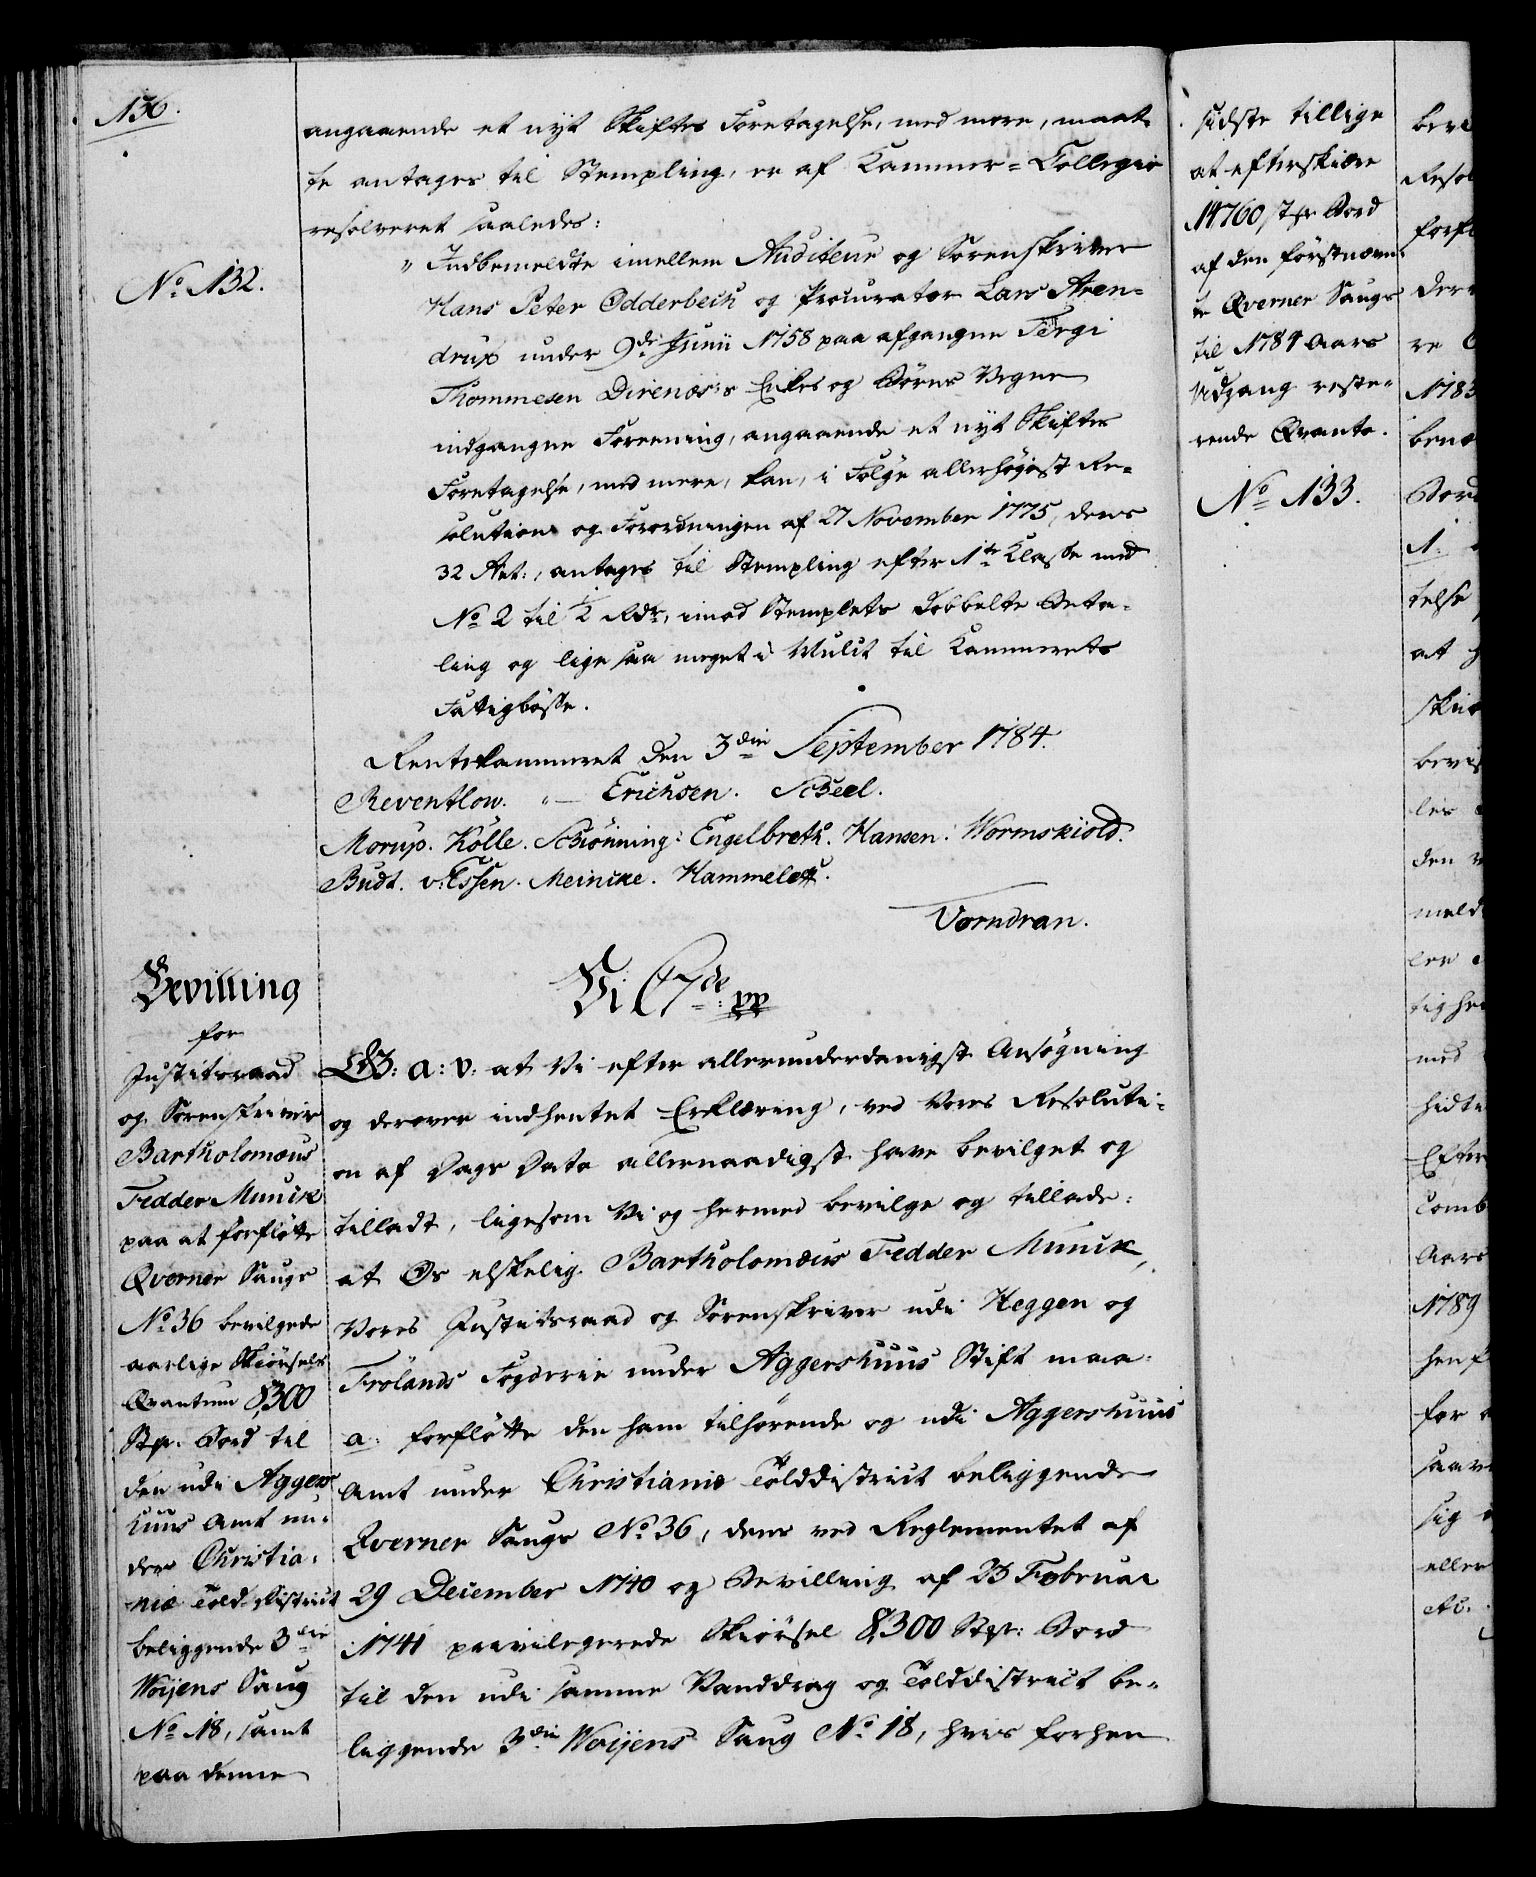 156.
angaaende et nyt Skiftes Foretagelse, med mere, maat-
te antages til Stempling, er af Kammer-Collegio
resolveret saaledes:
No. 132.
" Indbemeldte imellem Auditeur og Sorenskriver
Hans Peter Odderbech og Procurator Lars Aren-
drup under 9de Junii 1758 paa afgangne Tergi
Thommesen Direnæs's Enkes og Børns Vegne
indgangne Foreening, angaaende et nyt Skiftes
Foretagelse, med mere, kan, i Følge allerhøjest Re-
solution og Forordningen af 27 November 1775, dens
32 Art:, antages til Stempling efter 1te Klasse med
No. 2 til 1/2 Rdr, imod Stemplets dobbelte Beta-
ling og lige saa meget i Mulct til Kammerets
Fatigbøsse.
Rentekammeret den 3die September 1784.
Reventlow. "— Erichsen. Scheel.
Morup. Kölle. Schiönning: Engelbreth. Hansen. Wormskiold.
Budt. v: Essen. Meincke. Hammeleff.
Vorndran.
Bevilling
for
Justitsraad
og Sorenskriver
Bartholomæus
Fedder Munck
paa at forflötte
Qverner Saugs
No. 36 bevilgede
aarlige Skiörsels
Qvantum 8,300
Stpr. Bord til
den udi Aggers-
huus Amt un-
der Christia-
niæ Told-District
beliggende 3die
Woyens Saug
No. 18, samt
paa denne
Vi C 7de: pp
G: A: V: at Vi efter allerunderdanigst Ansøgning
og derover indhentet Erklæring, ved Vores Resoluti-
on af Dags Dato allernaadigst have bevilget og
tilladt, ligesom Vi og hermed bevilge og tillade:
at Os elskelig Bartholomæus Fedder Munck,
Vores Justitsraad og Sorenskriver udi Heggen og
Frölands Fogderie under Aggershuus Stift maa:
a: forflötte den ham tilhørende og udi Aggershuus
Amt under Christianiæ Tolddistrict beliggende
Qverner Saugs No. 36, dens ved Reglementet af
29 December 1740 og Bevilling af 23 Februar
1741 privilegerede Skiörsel 8,300 Stpr: Bord
til den udi samme Vanddrag og Tolddistrict be-
liggende 3die Woyens Saug No. 18, hvis forhen
sidste tillige
at efterskiære
14760 Stpr Bord
af den förstnævn-
te Qverner Saugs
til 1784 Aars
Udgang reste-
rende Qvanto.
No. 133.